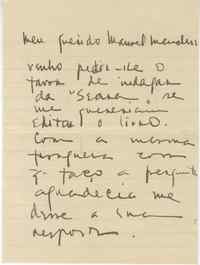 Meu querido Manuel Mendes
venho pedir-lhe o
favor de indagar
da "Seara" se
me quereriam
editar o livro.
Com a mesma
franqueza com
q. faço a pergunta
agradecia me
desse a sua
resposta.